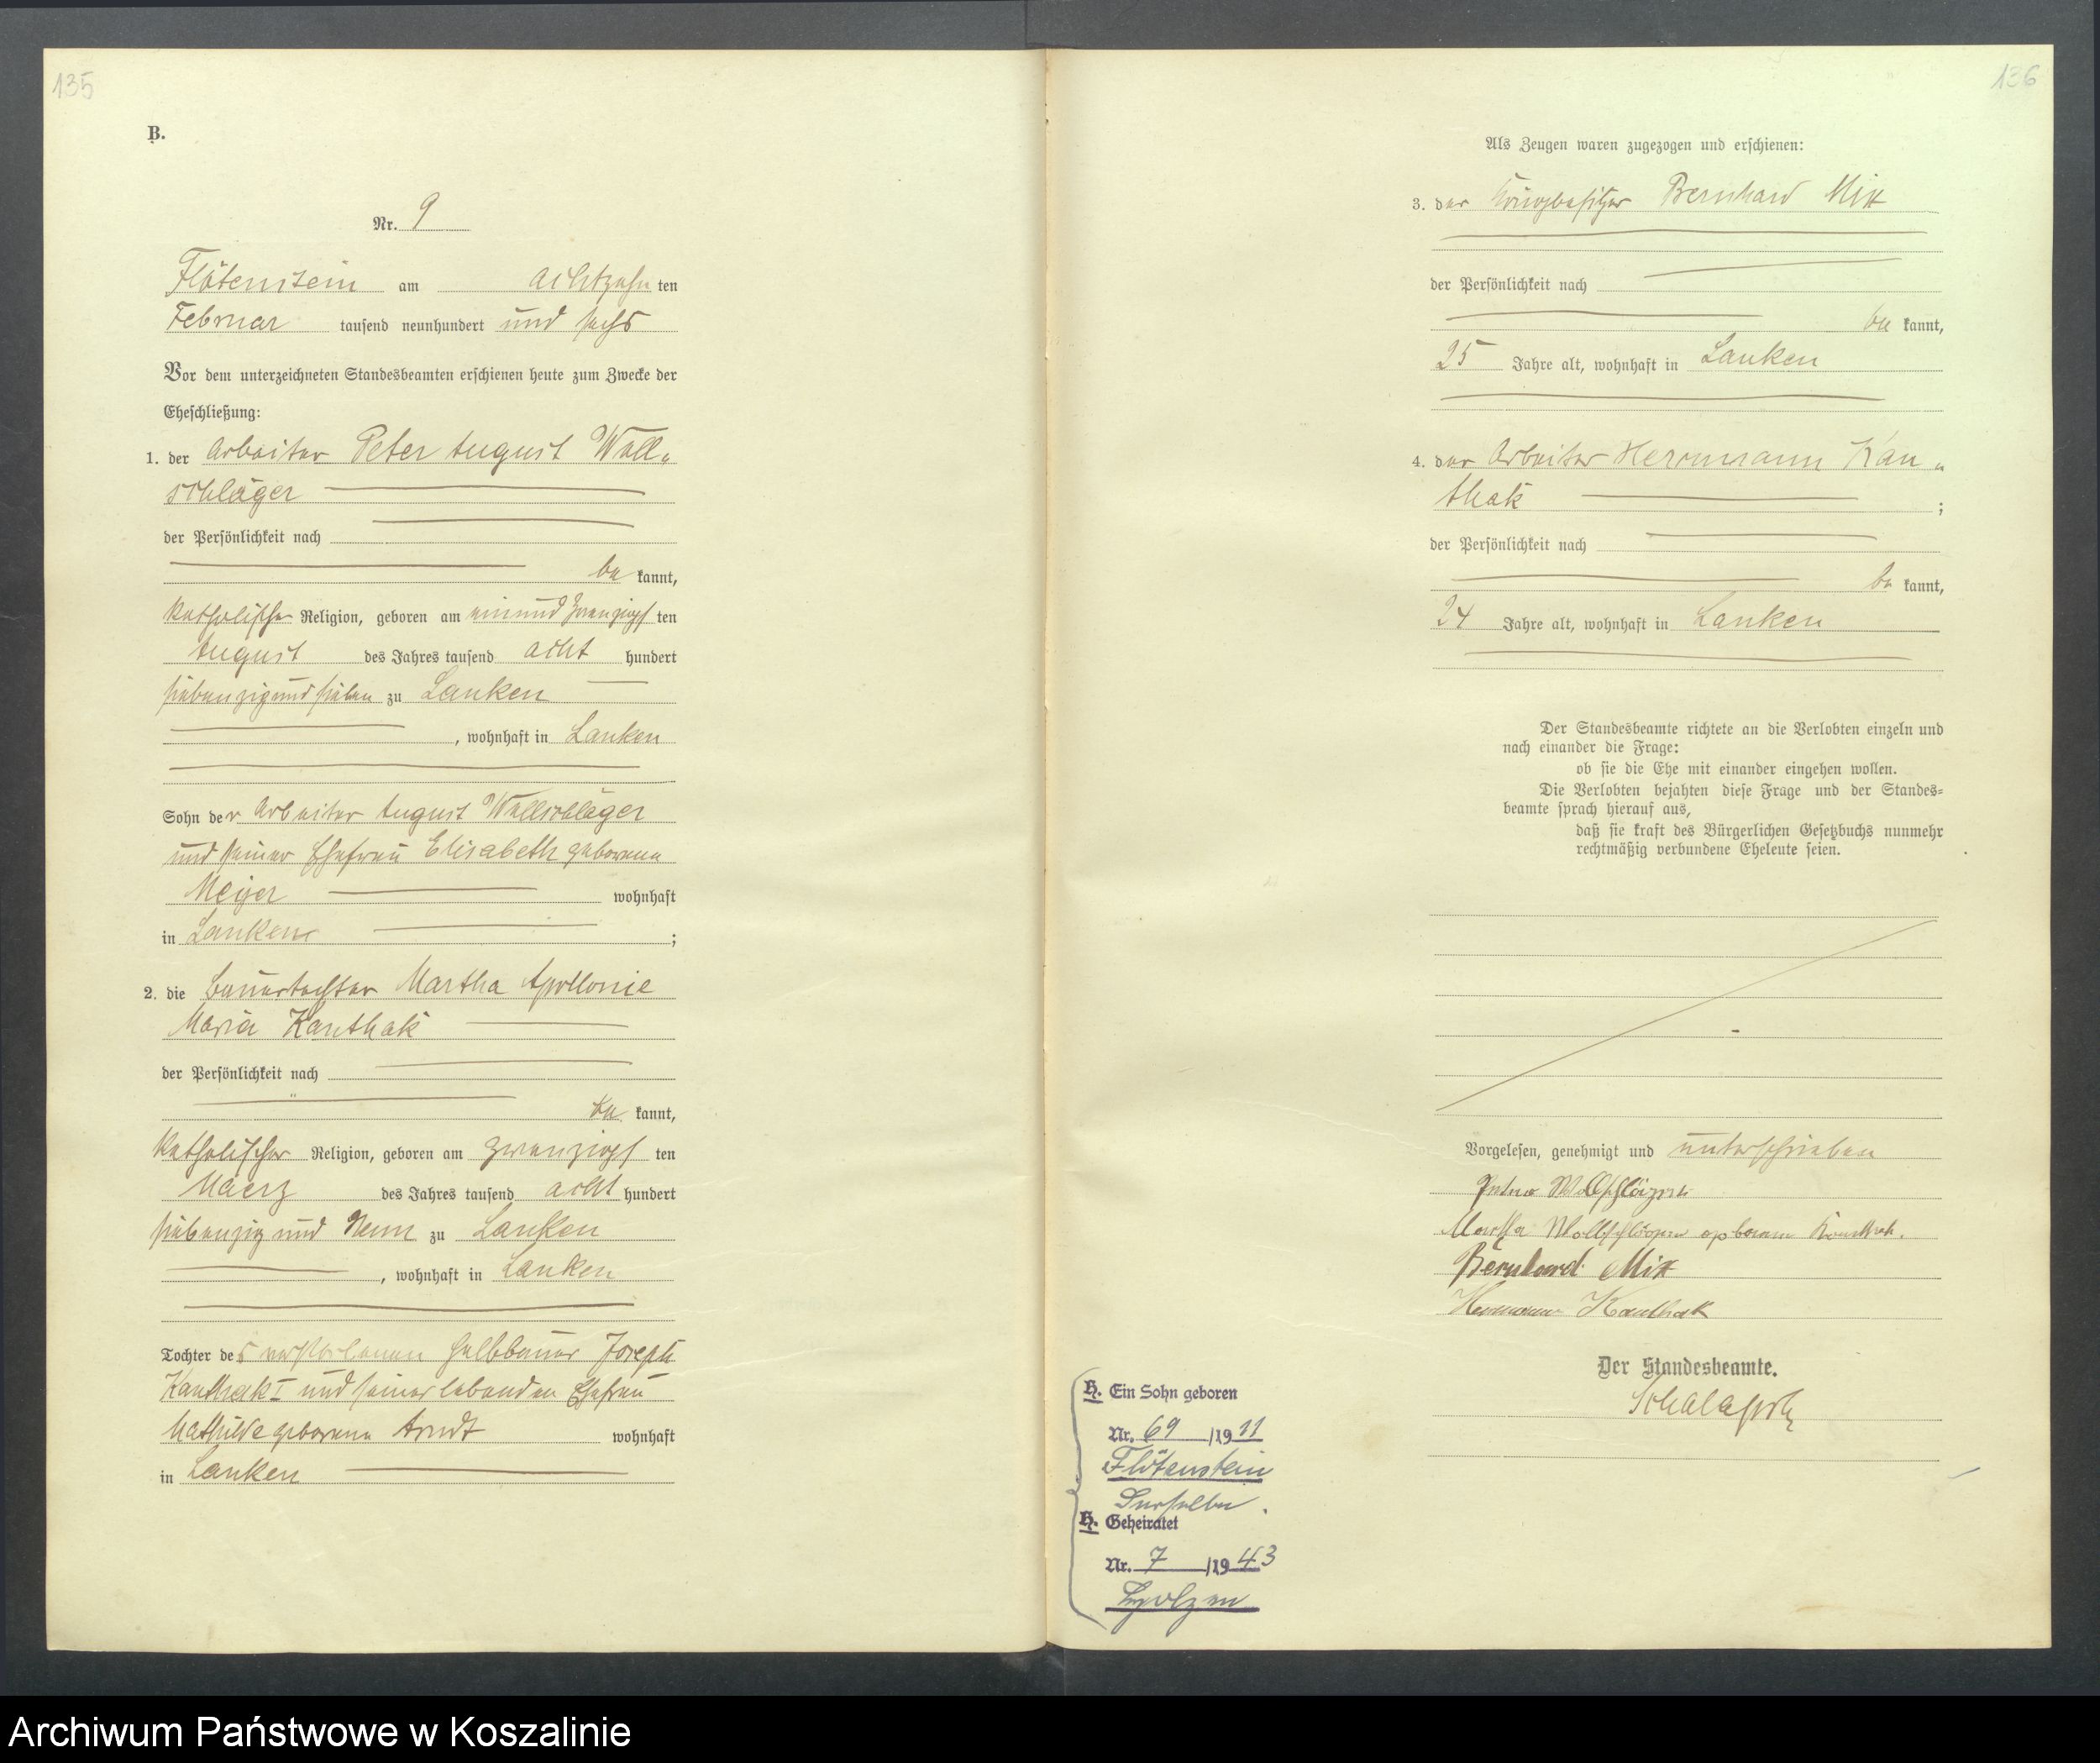 135
B.
Nr. 9
Flötenstein am achtzehn ten
Februar tausend neunhundert und sechs
Vor dem unterzeichneten Standesbeamten erschienen heute zum Zwecke der
Eheschließung:
1. der Arbeiter Peter August Woll„
schläger
der Persönlichkeit nach
be kannt,
katholischer Religion, geboren am einundzwanzigs ten
August des Jahres tausend acht hundert
siebenzig und sieben zu Lanken
, wohnhaft in Lanken
Sohn der Arbeiter August Wollschläger
und seiner Ehefrau Elisabeth geborene
Meyer wohnhaft
in Lanken ;
2. die Bauertochter Martha Apollonie
Maria Kanthak
der Persönlichkeit nach
be kannt,
katholischer Religion, geboren am zwanzigs ten
Maerz des Jahres tausend acht hundert
siebenzig und Neun zu Lanken
, wohnhaft in Lanken
Tochter des verstorbenen Halbbauer Joseph
Kanthak I und seiner lebenden Ehefrau
Mathilde geborene Arndt wohnhaft
in Lanken
136
Als Zeugen waren zugezogen und erschienen:
3. der Bernhard Mix
der Persönlichkeit nach
be kannt,
25 Jahre alt, wohnhaft in Lanken
4. der Arbeiter Herrmann Kan„
thak ;
der Persönlichkeit nach
be kannt,
24 Jahre alt, wohnhaft in Lanken
Der Standesbeamte richtete an die Verlobten einzeln und
nach einander die Frage:
ob sie die Ehe mit einander eingehen wollen.
Die Verlobten bejahten diese Frage und der Standes=
beamte sprach hierauf aus,
daß sie kraft des Bürgerlichen Gesetzbuchs nunmehr
rechtmäßig verbundene Eheleute seien.
Vorgelesen, genehmigt und unterschrieben
Peter Wollschläger
Martha Wollschläger geborene Kanthak.
Bernhard Mix
Hermann Kanthak
Der Standesbeamte.
H. Ein Sohn geboren
Nr. 69 /1911
Flötenstein
Derselbe.
H. Geheiratet
Nr. 7 /1943
Archiwum Państwowe w Koszalinie